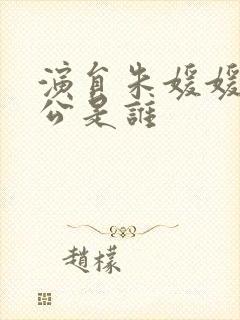 演員朱媛媛
公是誰
趙檬